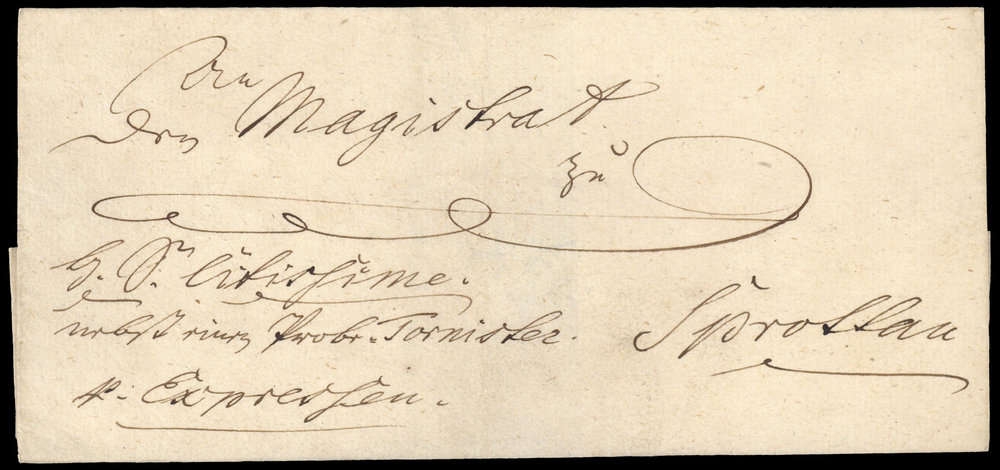 An
den Magistrat
zu
H. S. Citissime.
nebst einen Probe-Tornister.
Sprottau
p. Expressen.